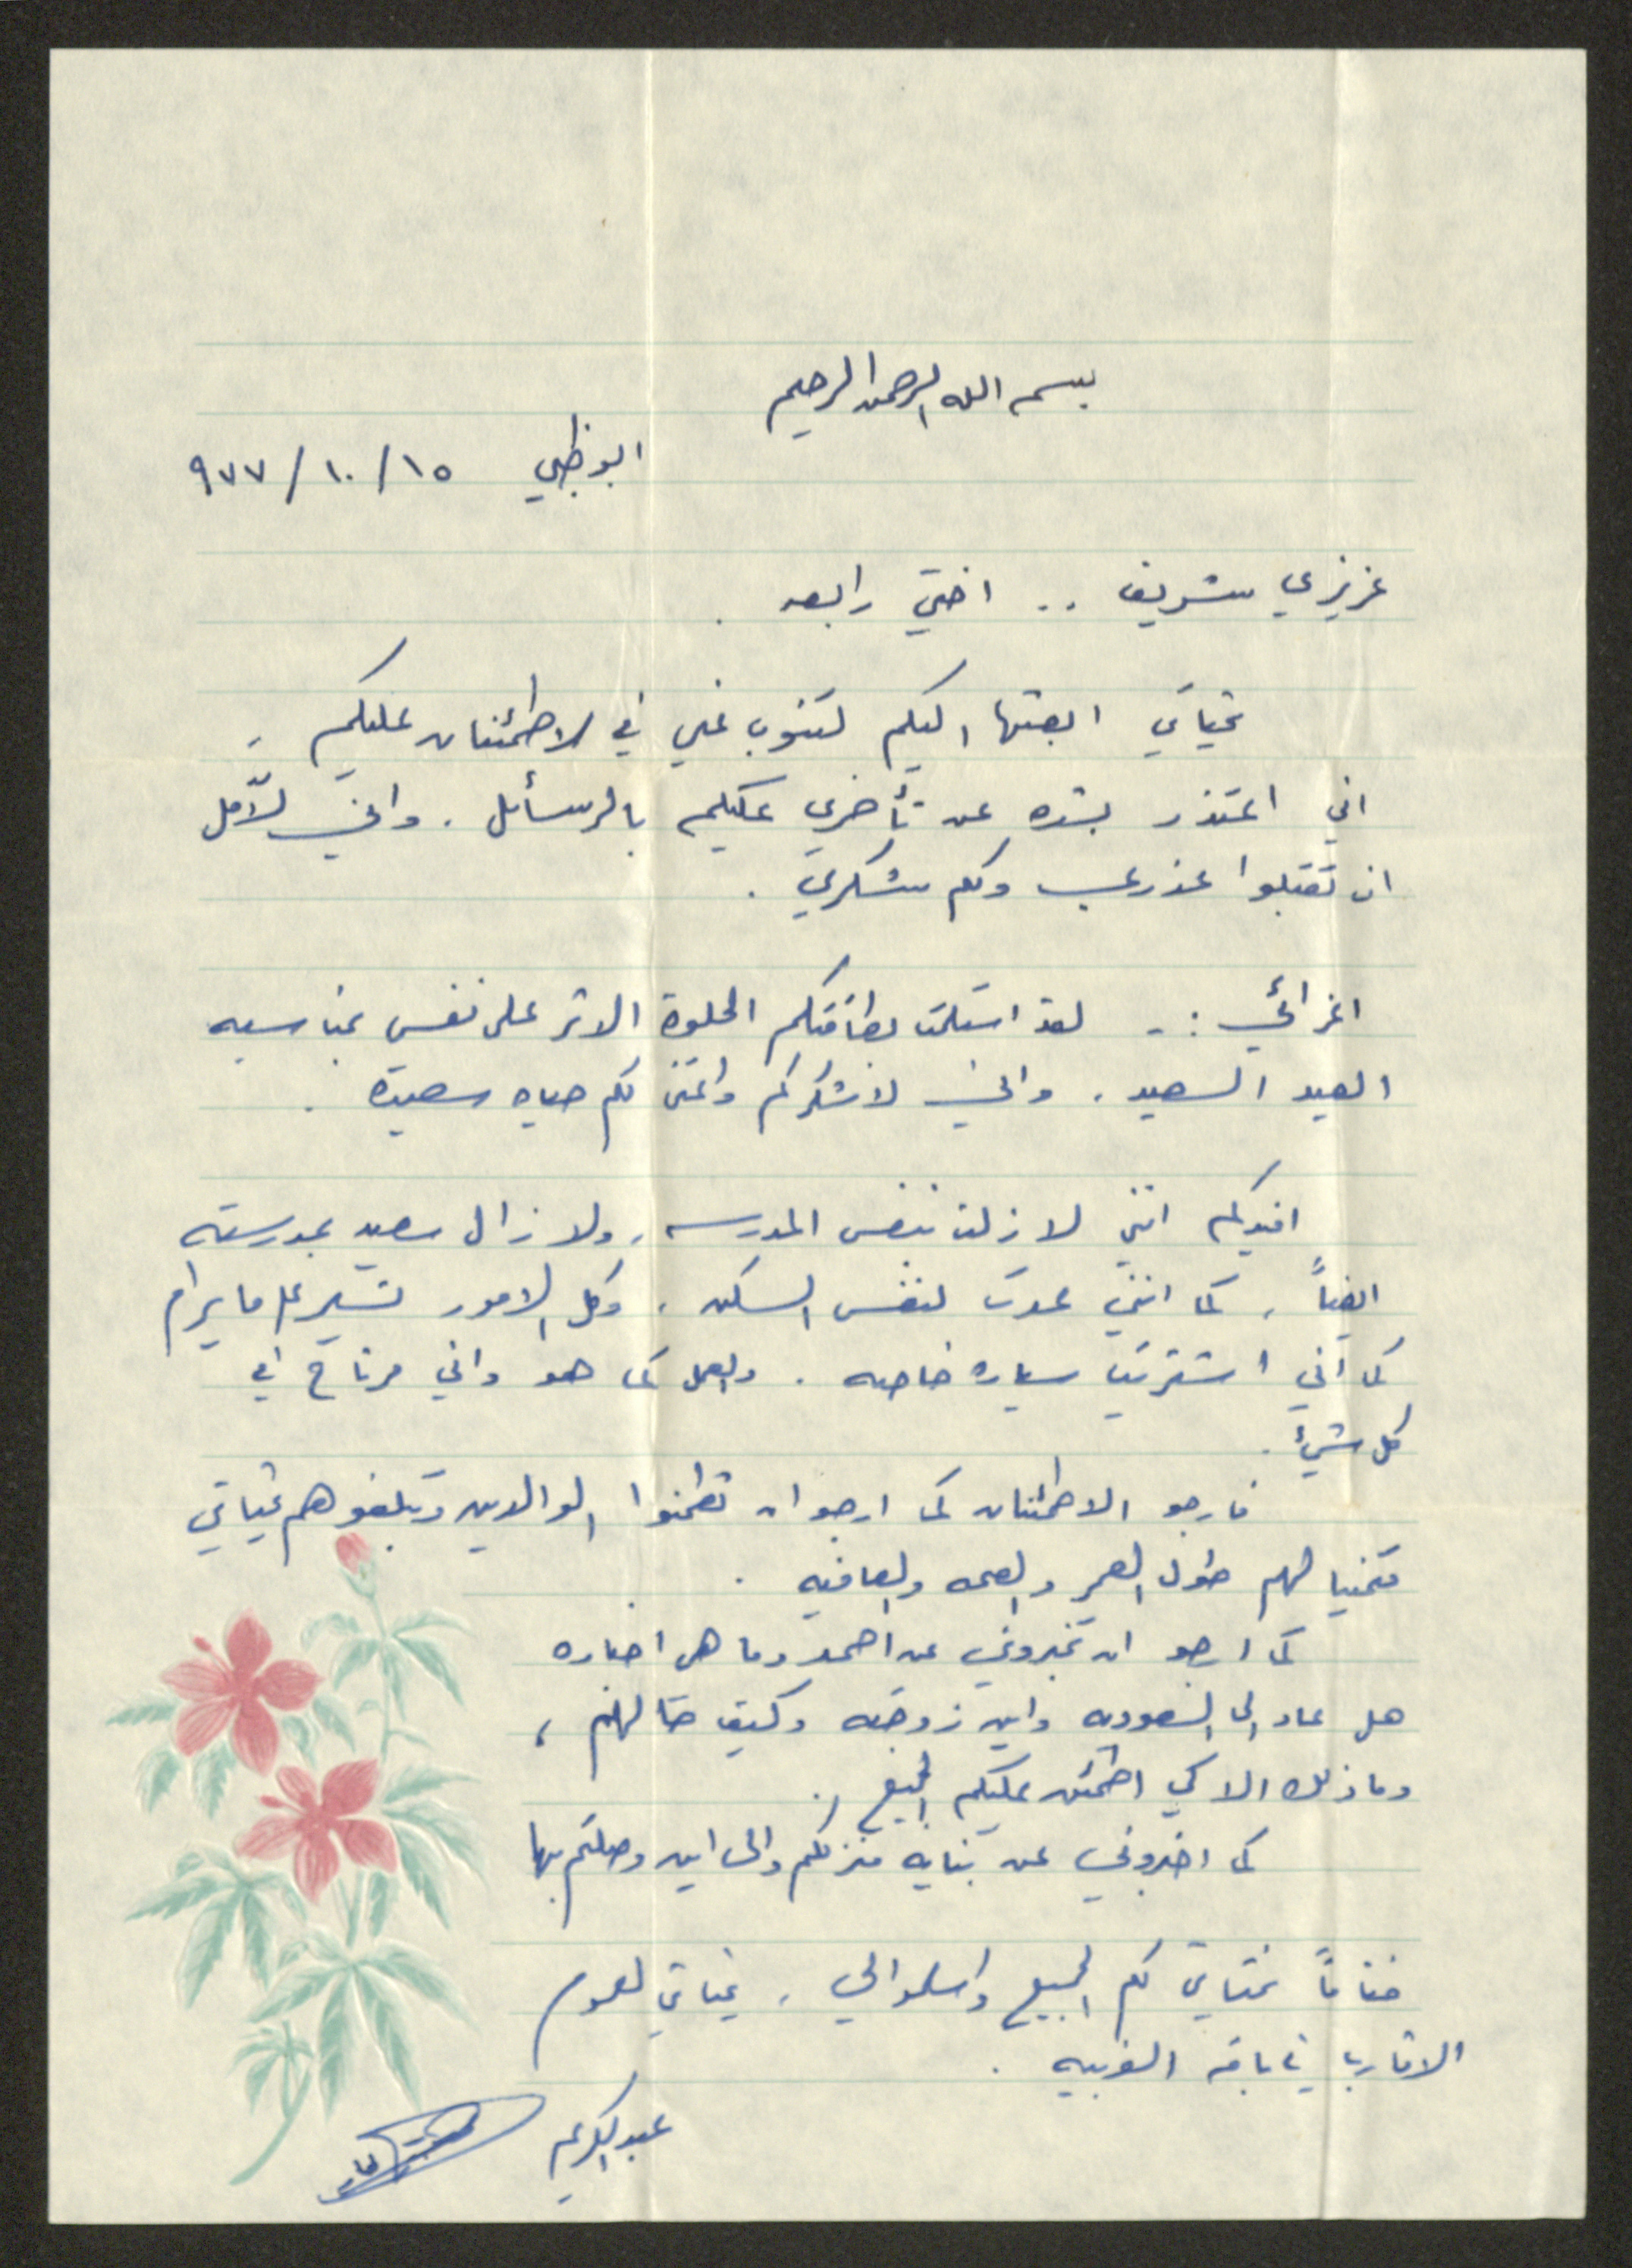 بسم الله الرحمن الرحيم
ابوظبي ١٥/١٠/٩٧٧
عزيزي شريف .. اختي رابعه .
تحياتي ابعثها اليكم لتنوب عني في الاطمئنان عليكم ،
اني اعتذر بشده عن تأخري عليكم بالرسائل . واني لآمل
ان تقبلوا عذري ولكم شكري .
اعزائي :- لقد استلمت بطاقتكم الحلوة الاثر على نفسي بمناسبه
العيد السعيد . واني لاشكركم واتمنى لكم حياه سعيدة .
افيدكم انني لا زلت بنفس المدرسه ، ولا زال سعيد بمدرسته
ايضاً ، كما انني عدت لنفس السكن ، وكل الامور تسير على ما يرام
كما انني اشتريت سياره خاصه . والعمل كما هو واني مرتاح في
كل شيئ .
فارجو الاطمئنان كما ارجو ان تطمنوا الوالدين وتبلغوهم تحياتي
متمنيا لهم طول العمر والصحه والعافيه .
كما ارجو ان تخبروني عن احمد وما هي اخباره
هل عاد الى السعوديه واين زوجته وكيف حالهم ،
وما ذلك الا كي اطمئن عليكم الجميع .
كما اخبروني عن بنايه منزلكم والى اين وصلتم بها
ختاماً تحياتي لكم الجميع واسلموا لي . تحياتي لعموم
الاقارب في باقه الغربيه .
عبدالكريم